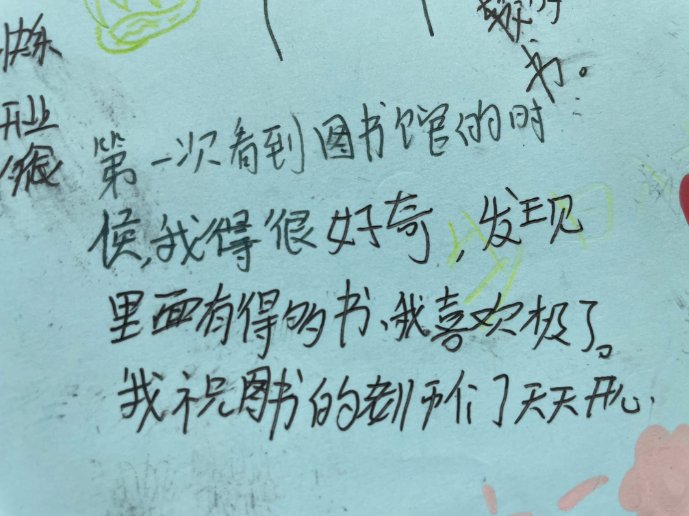 快乐
第一次看到图书馆的时
侯,我得很好奇,发现
里面有得的多书、我喜欢极了。
我祝图书的老师们天天开心.
书。